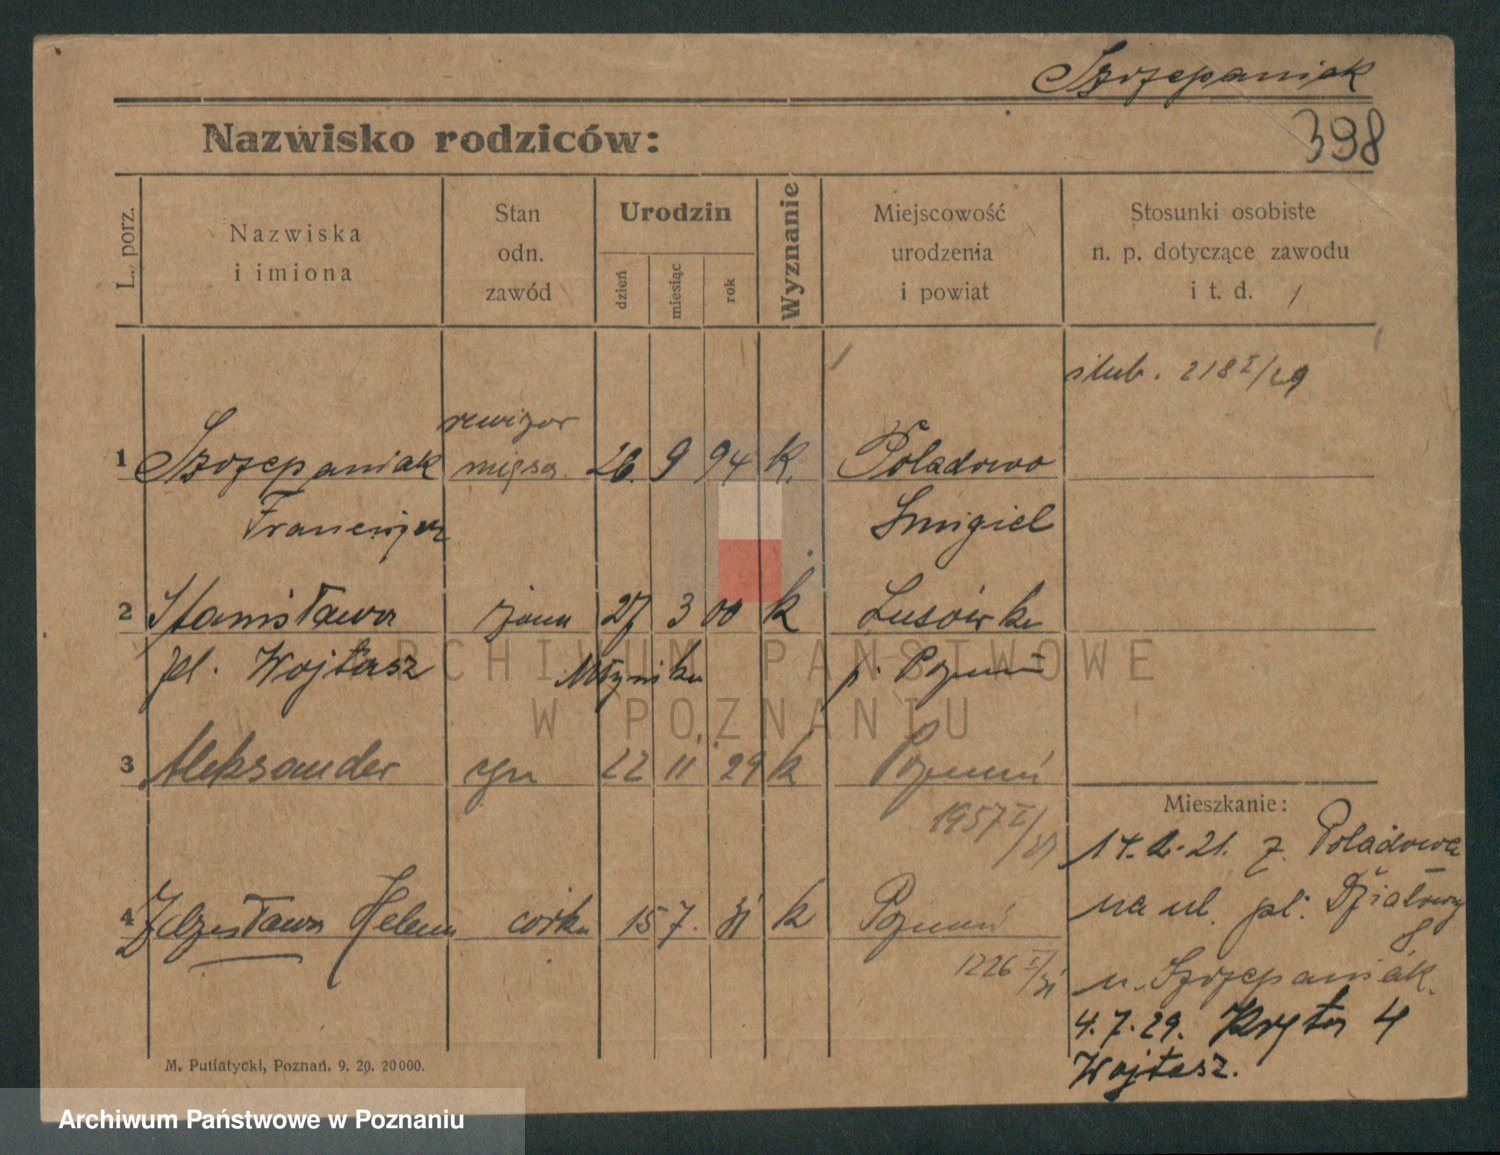 Szczepaniak
Nazwisko rodziców:
398
L. porz.
Nazwiska
i imiona
Stan
odn.
zawód
Urodzin
dzień
miesiąc
rok
Wyznanie
Miejscowość
urodzenia
i powiat
Stosunki osobiste
n. p. dotyczące zawodu
i t. d.
ślub. 218 I/29
rewizor
1 Szczepaniak mięsa. 26. 9 94 K. Poladowo
Franciszek Śmigiel
2 Stanisława żona 27 3 00 k Lusówko
pl. Wojtasz Młynika p. Poznań
ARCHIWUM PAŃSTWOWE
W POZNANIU
3 Aleksander syn 22 11 29 k Poznań
1957 I/31
Mieszkanie:
14.2.21. z. Poladowa
na ul. pl. Działowy
8
4 Zdzisława Helena córka 15 7. 31 k Poznań
1226 I/31
u. Szczepaniak.
4.7.29. Kręta 4
Wojtasz.
M. Putiatycki, Poznań. 9. 20. 20000.
Archiwum Państwowe w Poznaniu